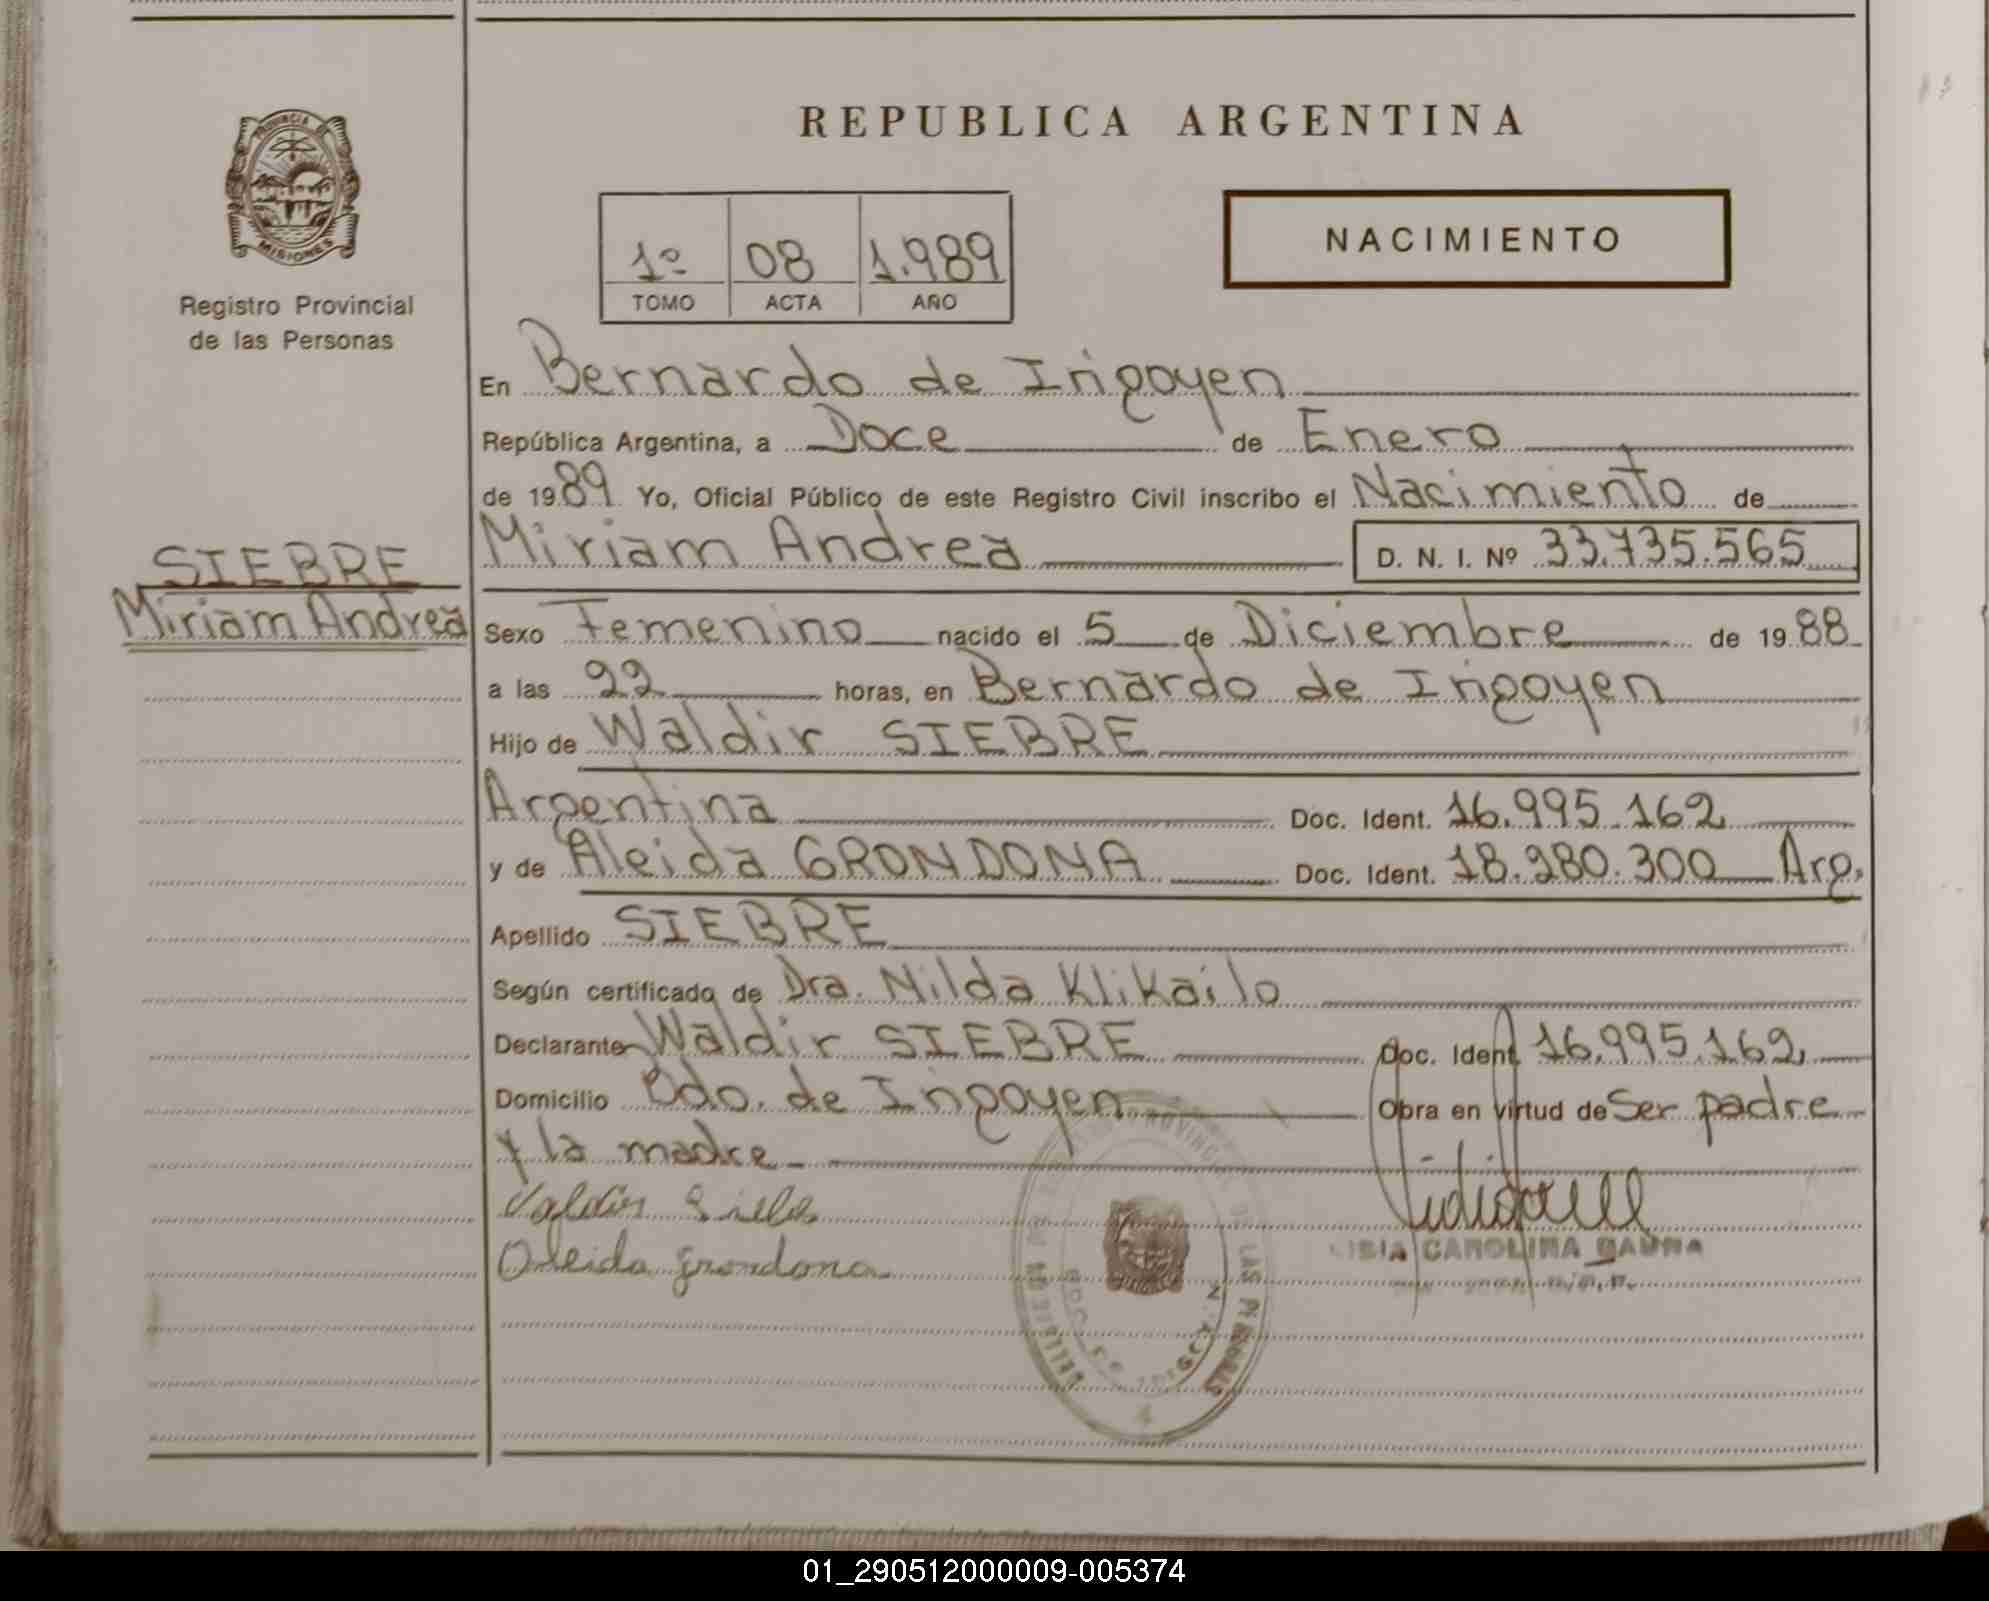 REPUBLICA ARGENTINA
PROVINCIA DE
MISIONES
Registro Provincial
de las Personas
1º 08 1.989
TOMO ACTA AÑO
NACIMIENTO
En Bernardo de Irigoyen
República Argentina, a Doce de Enero
de 1989 Yo, Oficial Público de este Registro Civil inscribo el Nacimiento de
Miriam Andrea D. N. I. Nº 33.735.565
SIEBRE
Miriam Andrea
Sexo Femenino nacido el 5 de Diciembre de 1988
a las 22 horas, en Bernardo de Irigoyen
Hijo de Waldir SIEBRE
Argentina Doc. Ident. 16.995.162
y de Aleida GRONDONA Doc. Ident. 18.280.300 Arg.
Apellido SIEBRE
Según certificado de Dra. Nilda Klikailo
Declarante Waldir SIEBRE Doc. Ident. 16.995.162
Domicilio Bdo. de Irigoyen Obra en virtud de Ser padre
y la madre
Valdir Siebe
Oleida grondona
CAROLINA
01_290512000009-005374